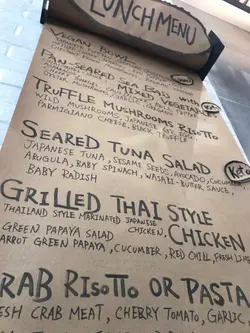 LUNCH MENU
VEGAN BOWL
PAN-SEARED SEA BASS WITH
MIXED VEGETABLE
TRUFFLE MUSHROOMS RISOTTO
WILD MUSHROOMS, JAPANESE RICE,
PARMIGIANO CHEESE, BLACK TRUFFLE
SEARED TUNA SALAD
JAPANESE TUNA, SISAMI SEEDS, AVOCADO, CUCUMBER
ARUGULA, BABY SPINACH, WASABI-BUTTER, SAUCE,
BABY RADISH
Keto
GRILLED THAI STYLE
CHICKEN
THAILAND STYLE MARINATED JAPANESE
CHICKEN,
GREEN PAPAYA SALAD
CARROT GREEN PAPAYA, CUCUMBER, RED CHILL, FRESH LIME
CRAB RISOTTO OR PASTA
FRESH CRAB MEAT, CHERRY TOMATO, GARLIC